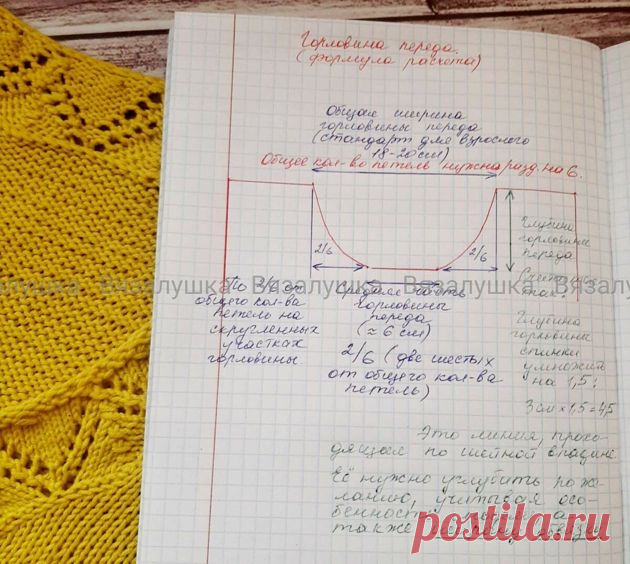 Горловина переда.
(формула расчета)
Общая ширина
горловины переда
(стандарт для взрослого
18-20см)
Общее кол-во петель нужно разд. на 6.
2/6
2/6
Глубина
горловины
переда
По 2/6 от
общего кол-ва
петель на
скругленных
участках
горловины.
Средняя часть
горловины
переда
(≈ 6 см)
2/6 (две шестых
от общего кол-ва
петель)
Глубина
горловины
спинки
умножить
на 1,5:
3см×1,5=4,5
Это линия, прохо-
дящая по шейной впадине
Её нужно углубить по же-
ланию, учитывая осо-
бенности
также
Вязалушка Вязалушка Вязалушка Вязалушка
postila.ru